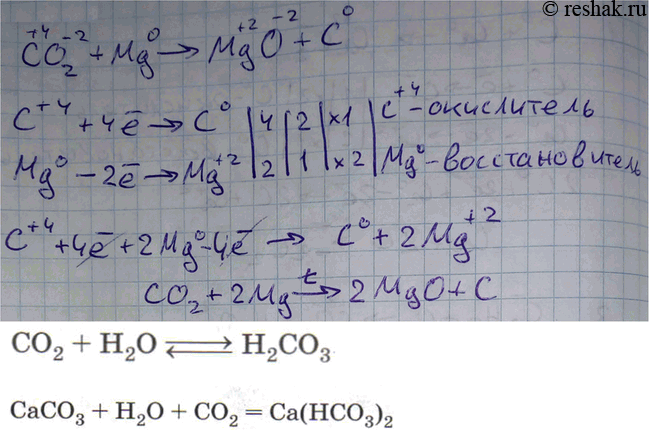 © reshak.ru
+4 -2 0 +2 -2 0
CO₂ + Mg → MgO + C
C⁺⁴ + 4ē → C⁰ | 4 | 2 | ×1 | C⁺⁴ - окислитель
Mg⁰ - 2ē → Mg⁺² | 2 | 1 | ×2 | Mg⁰ - восстановитель
C⁺⁴ + 4ē + 2Mg⁰ - 4ē → C⁰ + 2Mg⁺²
CO₂ + 2Mg →ᵗ 2MgO + C
CO₂ + H₂O ⇄ H₂CO₃
CaCO₃ + H₂O + CO₂ = Ca(HCO₃)₂